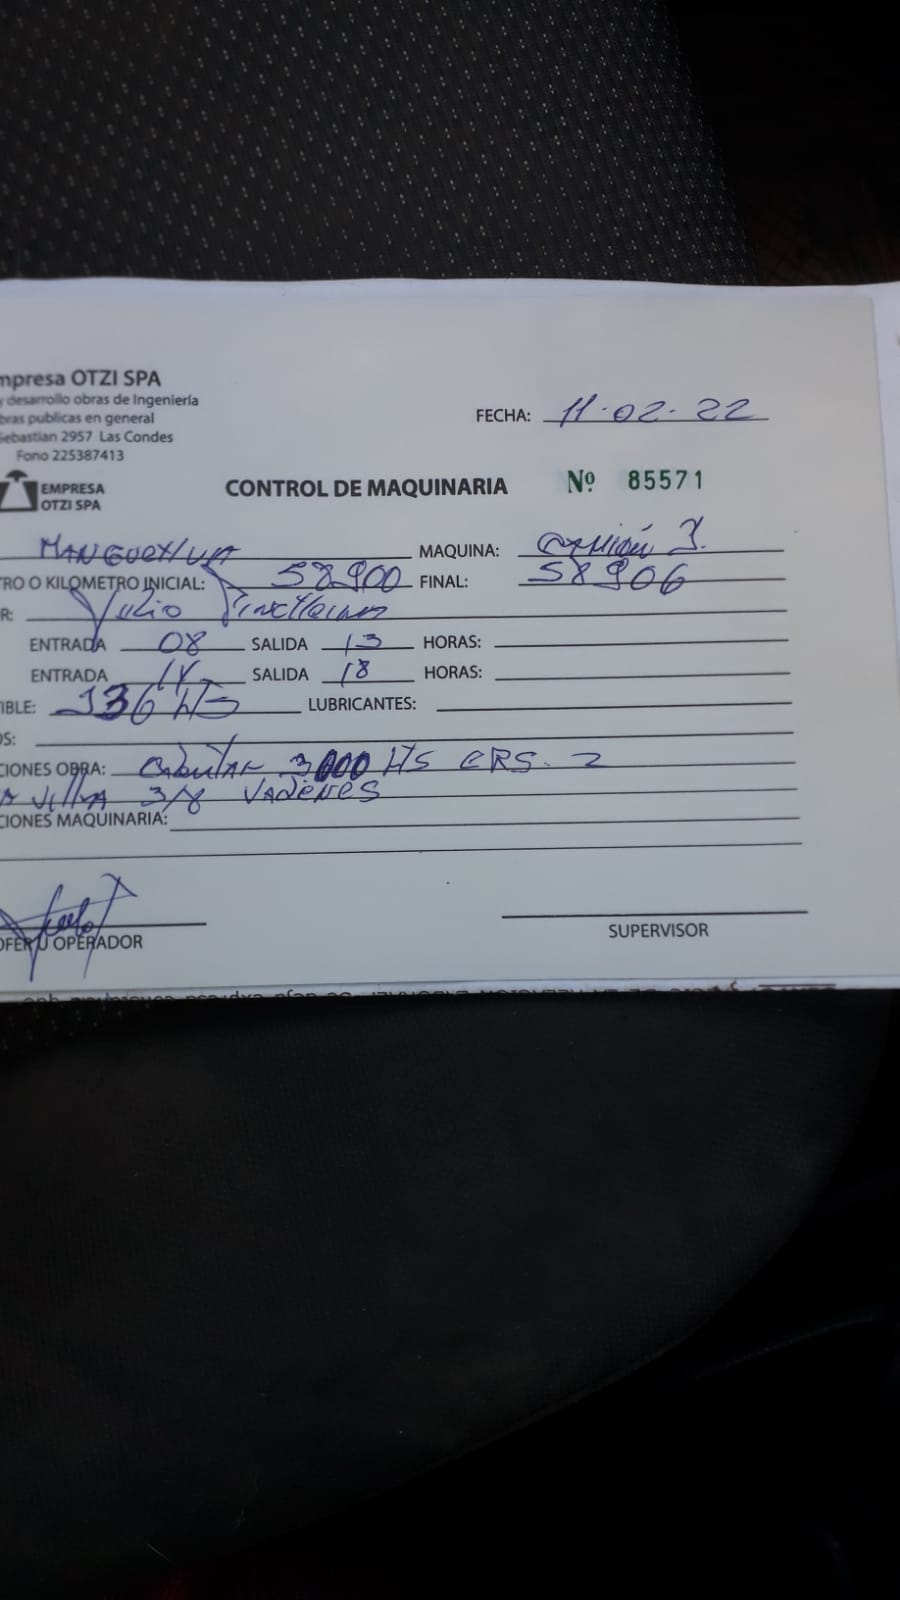 mpresa OTZI SPA
y desarrollo obras de Ingeniería
bras publicas en general
Sebastian 2957 Las Condes
Fono 225387413
FECHA: 11-02-22
EMPRESA
OTZI SPA
CONTROL DE MAQUINARIA Nº 85571
MAQUINA: CAMIÓN 3.
TRO O KILOMETRO INICIAL: 58900 FINAL: 58906
R: Julio
ENTRADA 08 SALIDA 13 HORAS:
ENTRADA 14 SALIDA 18 HORAS:
IBLE: 136 LTS LUBRICANTES:
OS:
CIONES OBRA: 3000 LTS CRS. 2
3/8 VADENES
CIONES MAQUINARIA:
OFER U OPERADOR
SUPERVISOR